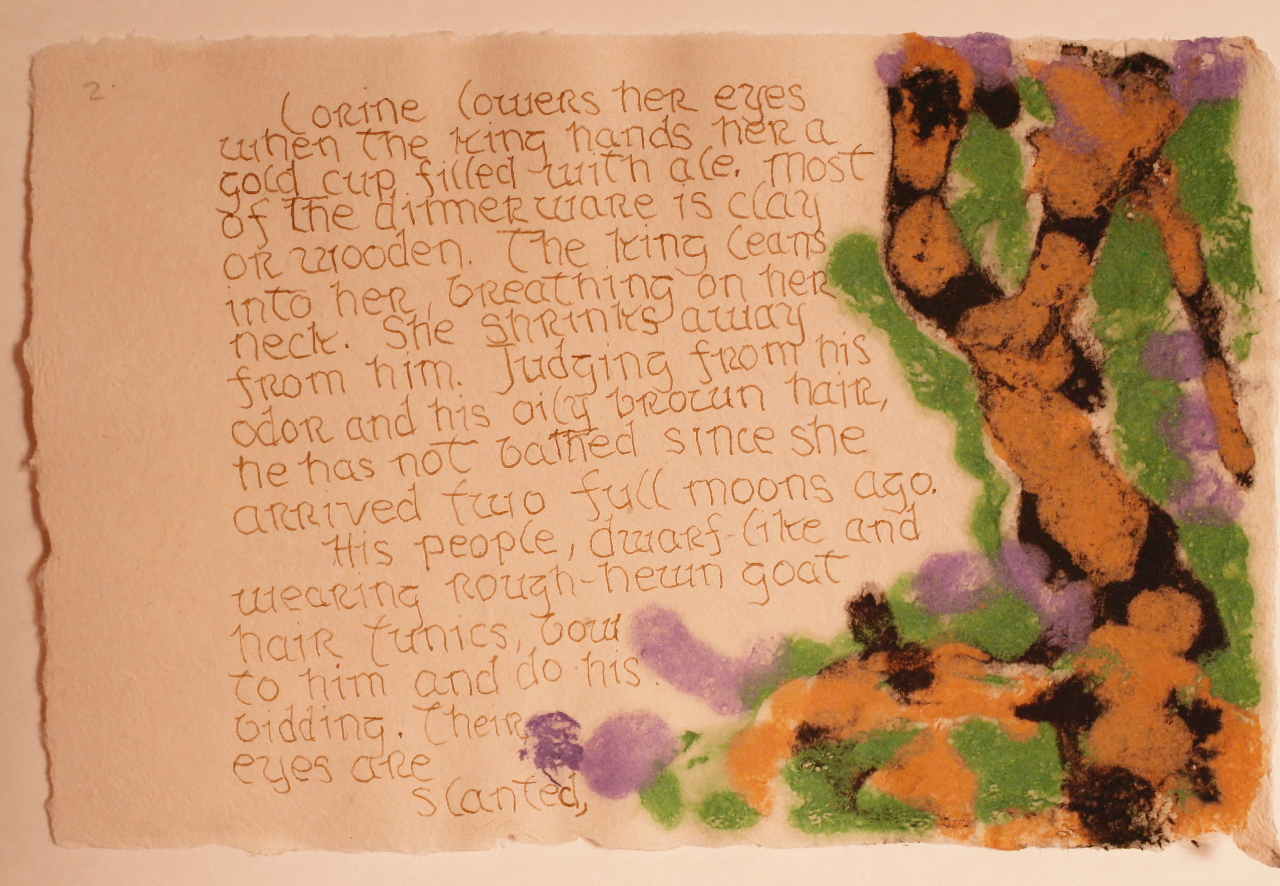 2.
Corine lowers her eyes
when the king hands her a
gold cup filled with ale. Most
of the dinnerware is clay
or wooden. The king leans
into her, breathing on her
neck. She shrinks away
from him. Judging from his
odor and his oily brown hair,
he has not bathed since she
arrived two full moons ago.
His people, dwarf-like and
wearing rough-hewn goat
hair tunics, bow
to him and do his
bidding. Their
eyes are
slanted,